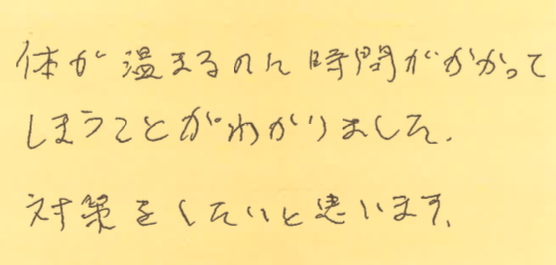 体が温まるのに時間がかかって
しまうことがわかりました.
対策をしたいと思います.